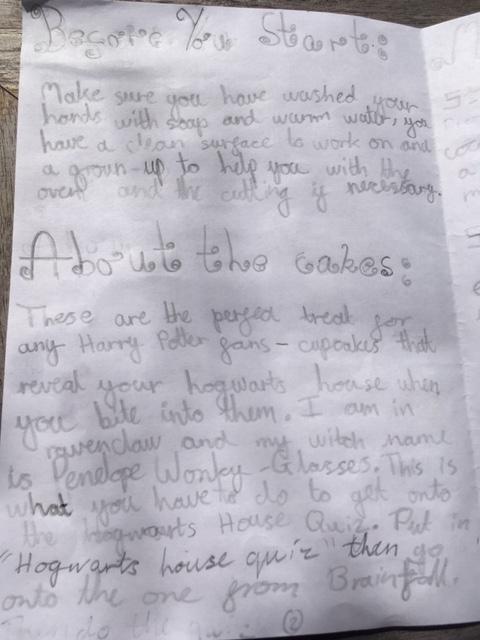 Before You Start:
Make sure you have washed your
hands with soap and warm water, you
have a clean surface to work on and
a grown-up to help you with the
oven and the cutting if necessary.
About the cakes:
These are the perfect treat for
any Harry Potter fans - cupcakes that
reveal your hogwarts house when
you bite into them. I am in
ravenclaw and my witch name
is Penelope Wonky-Glasses. This is
what you have to do to get onto
the Hogwarts House Quiz. Put in
"Hogwarts house quiz" then go
onto the one from Brainfall.
Then do the
2